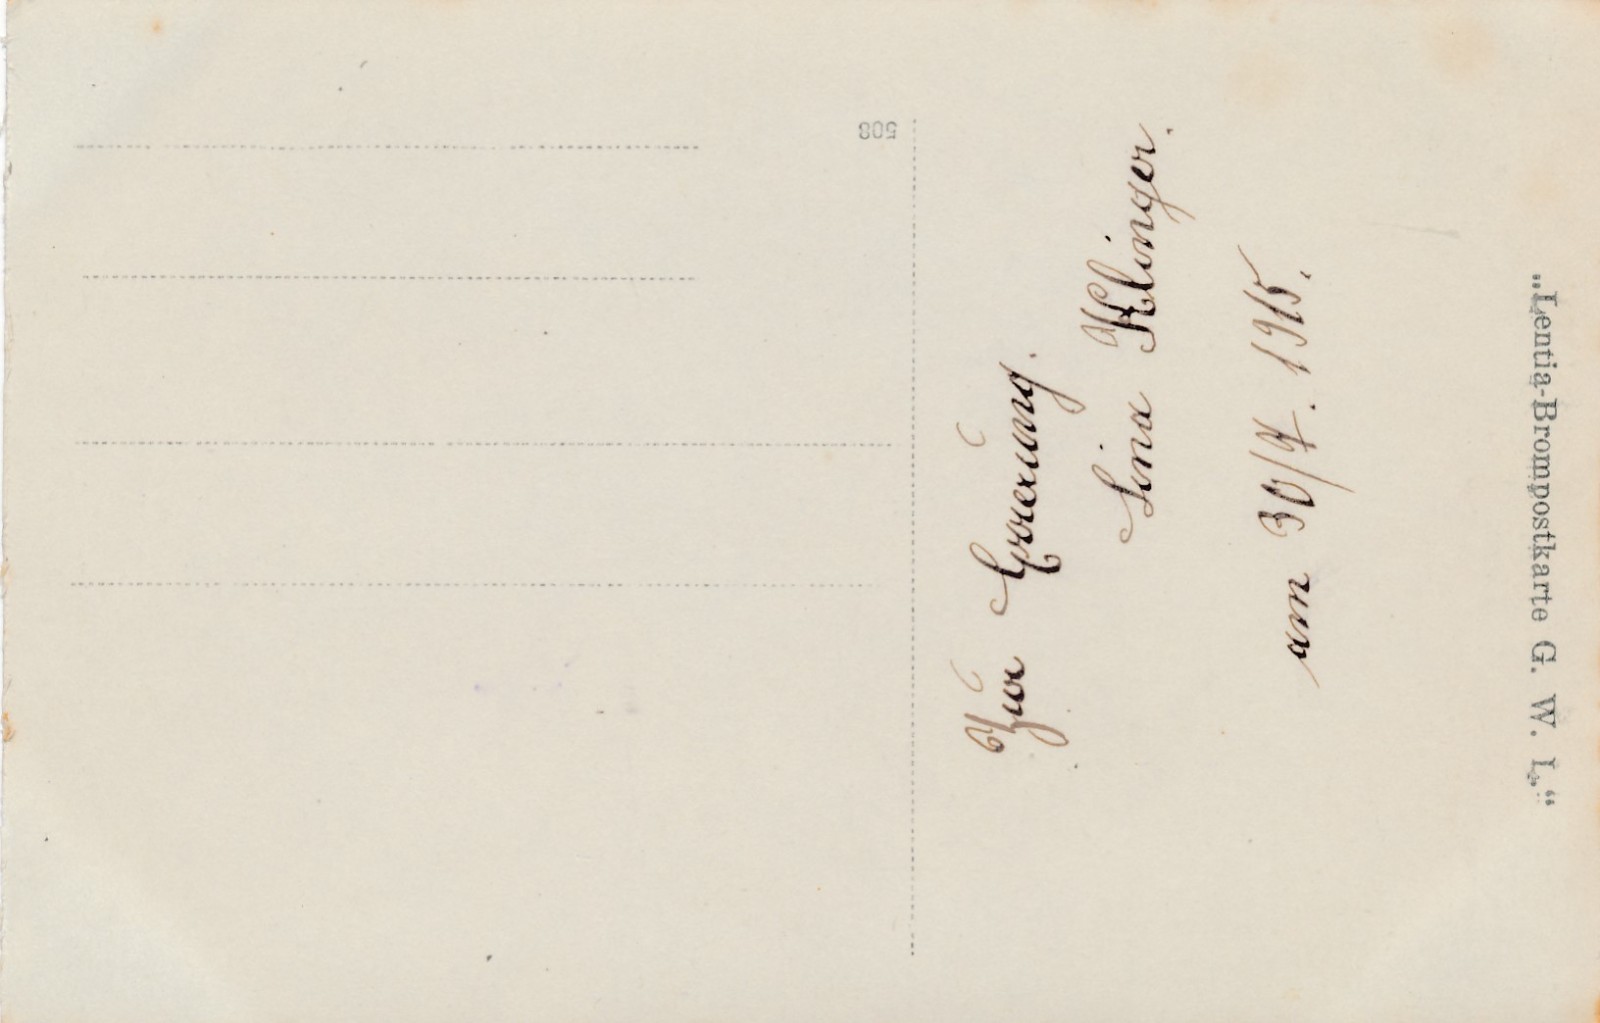 508
Zur Errerung.
Lina Klinger.
am 30/7. 1915.
„Lentia-Brompostkarte G. W. L.“